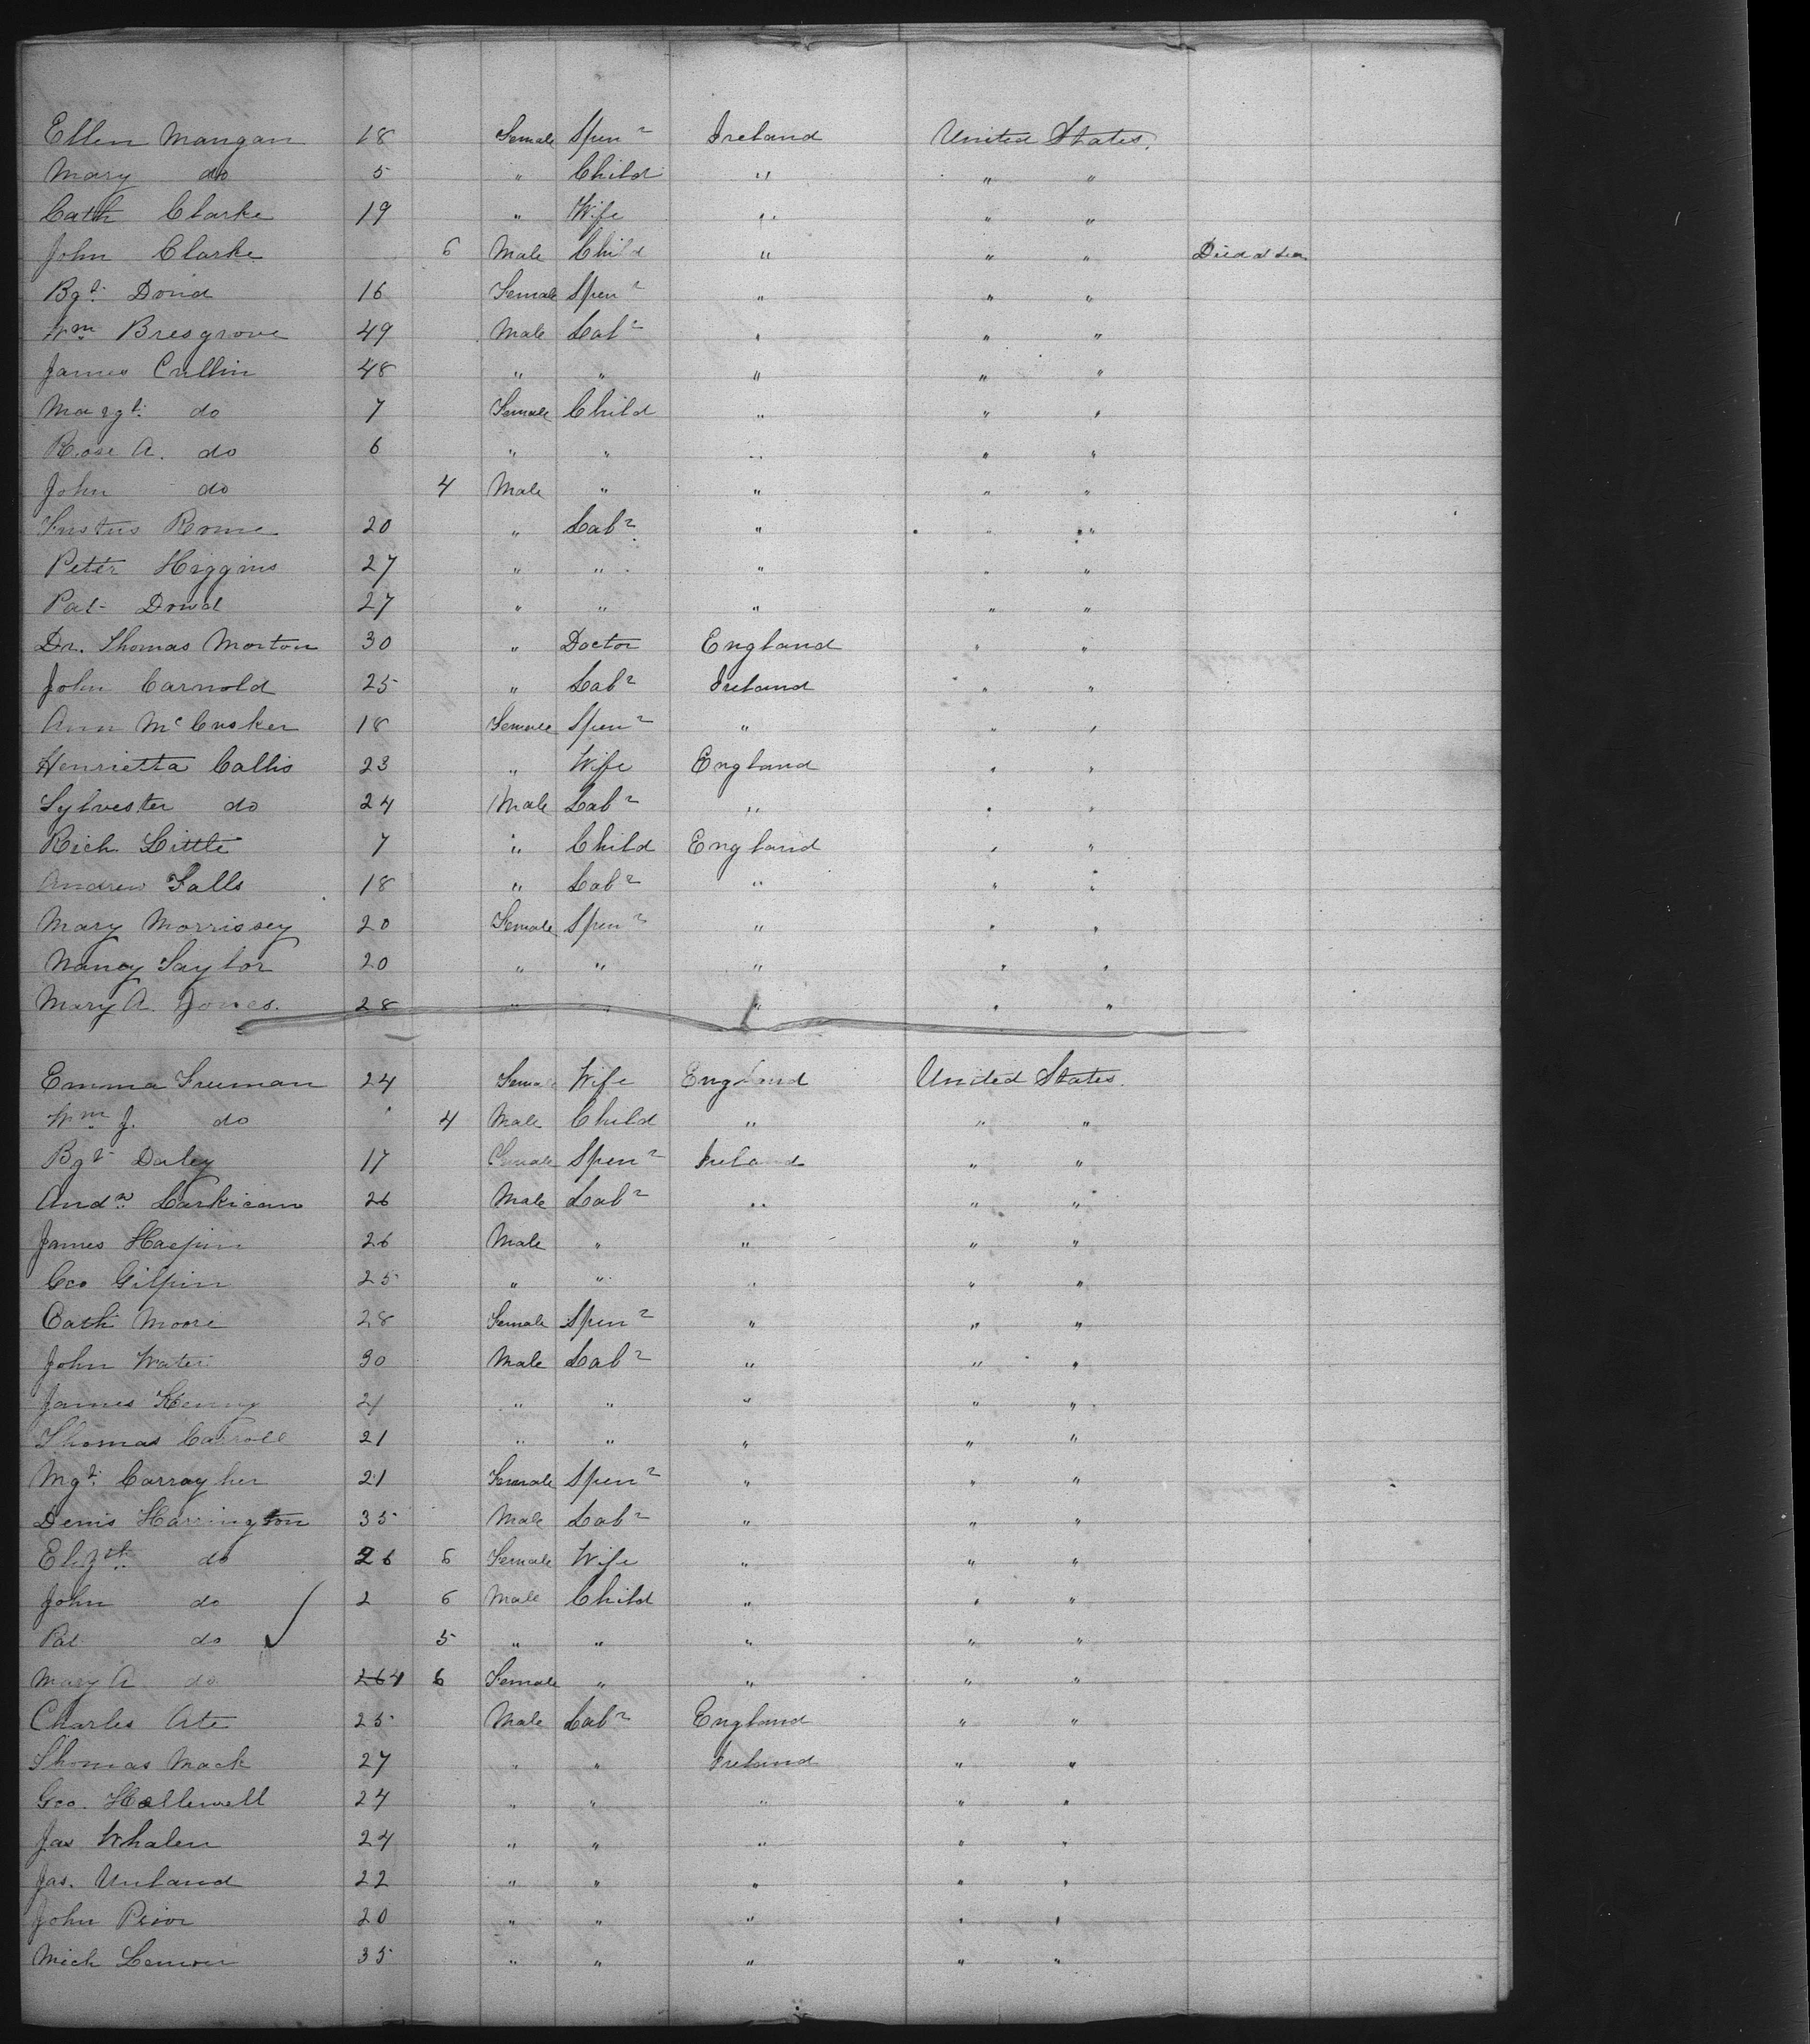 Ellen Mangan 18 Female Spenr Ireland United States.
Mary do 5 " Child " " "
Cath Clarke 19 " Wife " " "
John Clarke 6 Male Child " " " Died at Sea
Bgt. Dowd 16 Female Spenr " " "
Wm Bresgrove 49 Male Labr " " "
James Cullin 48 " " " " "
Margt. do 7 Female Child " " "
Rose A. do 6 " " " " "
John do 4 Male " " " "
20 " Labr " " "
Peter Higgins 27 " " " " "
Pat Dowd 27 " " " " "
Dr. Thomas Morton 30 " Doctor England " "
John Carnold 25 " Labr Ireland " "
Ann McCusker 18 Female Spenr " " "
Henrietta Callis 23 " Wife England " "
Sylvester do 24 Male Labr " " "
Rich Little 7 " Child England " "
Andrew Falls 18 " Labr " " "
Mary Morrissey 20 Female Spenr " " "
Nancy Taylor 20 " " " " "
Mary A. Jones. 28 " " " " "
Emma Freeman 24 Female Wife England United States.
Wm J. do 4 Male Child " " "
Bgt Daley 17 Female Spenr Ireland " "
Andw. 26 Male Labr " " "
James 26 Male " " " "
Geo Gilpin 25 " " " " "
Cath Moore 28 Female Spenr " " "
John Water 30 Male Labr " " "
James Henry 21 " " " " "
Thomas Carroll 21 " " " " "
Mgt. Carragher 21 Female Spenr " " "
Denis Harrington 35 Male Labr " " "
Elizth. do 26 6 Female Wife " " "
John do 2 6 Male Child " " "
Pat do 5 " " " " "
Mary A do 264 6 Female " " " "
Charles Ate 25 Male Labr England " "
Thomas Mack 27 " " Ireland " "
Geo. Hallewell 24 " " " " "
Jas Whalen 24 " " " " "
Jas. Unland 22 " " " " "
John Prior 20 " " " " "
Mich Lennon 35 " " " " "